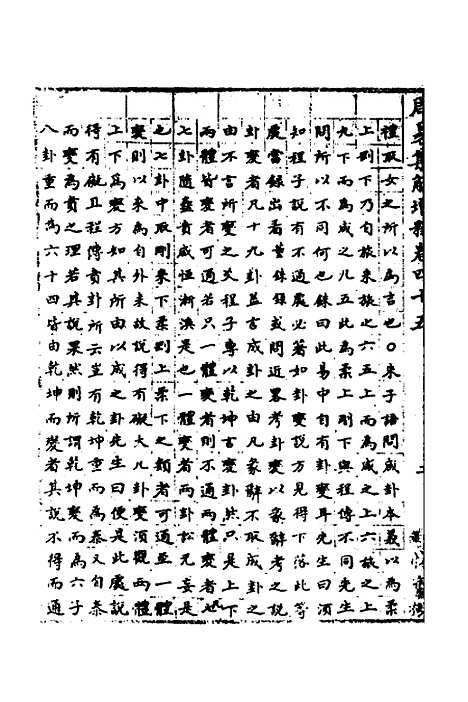 周易集解增釋卷四十五
禮取女之所以為言也○朱子語問咸卦本義以為柔
上剛下乃自旅來旅之六五上而為咸之上六旅之上
九下而為咸之九五此為柔上剛下與程傳不同先生
問所以不同何也銖曰此易中自有卦變耳先生曰須
知程子說有不通處必著如卦變說方見得下落此等
處當錄出看董銖錄或問近畧考卦變以彖辭考之說
卦變者凡十九卦蓋言成卦之由凡彖辭不取成卦之
由不言所變之爻程子專以乾坤言變卦然只是上下
兩體皆變者可通若只一體變者則不通兩體變者凡
七卦隨蠱賁咸恒漸渙是也一體變者兩卦訟无妄是
也七卦中取剛來下柔剛上柔下之類者可通至一體
變則以來為自外來故說得有礙大凡卦變須觀兩體
上下為變方知其所由以成之卦先生曰便是此處說
得有礙且程傳賁卦所云豈有乾坤重而為泰又自泰
而變為賁之理若其說果然則所謂乾坤變而為六子
八卦重而為六十四皆由乾坤而變者其說不得而通